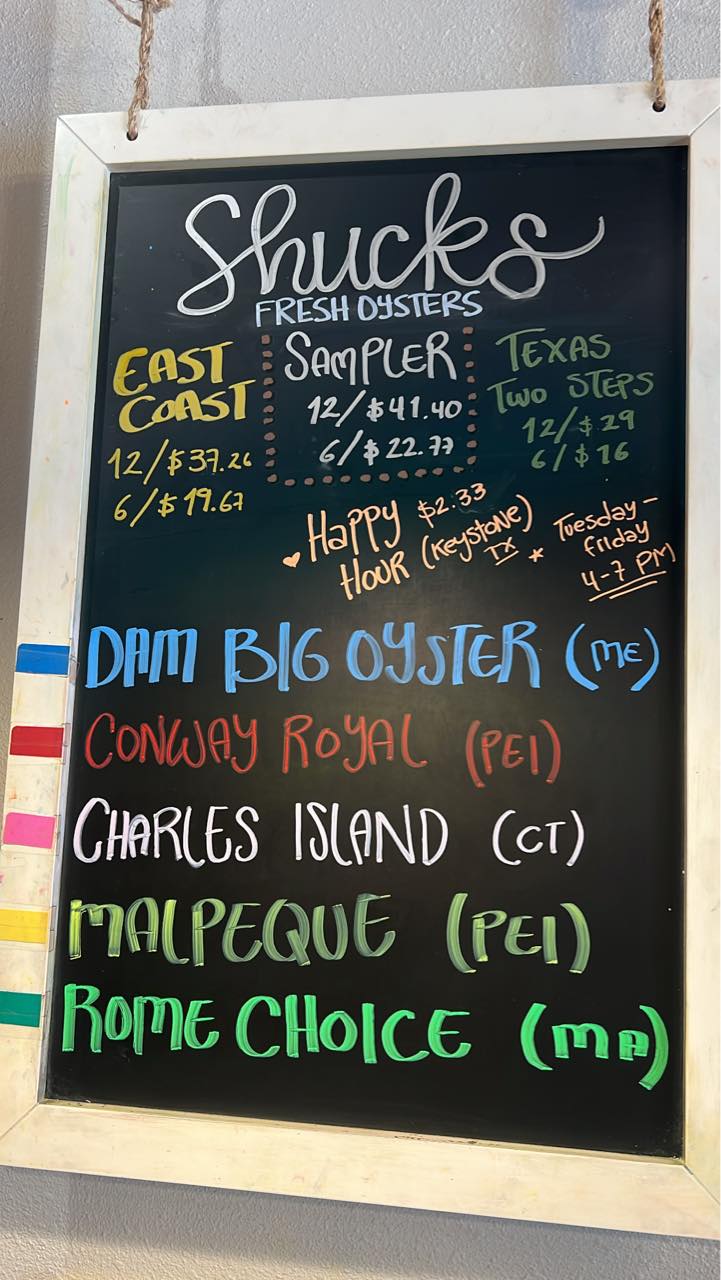 Shucks
FRESH OYSTERS
EAST
COAST
12/$37.26
6/$19.67
SAMPLER
12/$41.40
6/$22.77
TEXAS
TWO STEPS
12/$29
6/$16
HAPPY
HOUR
$2.33
(KEYSTONE)
TX
* Tuesday-
friday
4-7 PM
DAM BIG OYSTER (ME)
CONWAY ROYAL (PEI)
CHARLES ISLAND (CT)
MALPEQUE (PEI)
ROME CHOICE (MA)